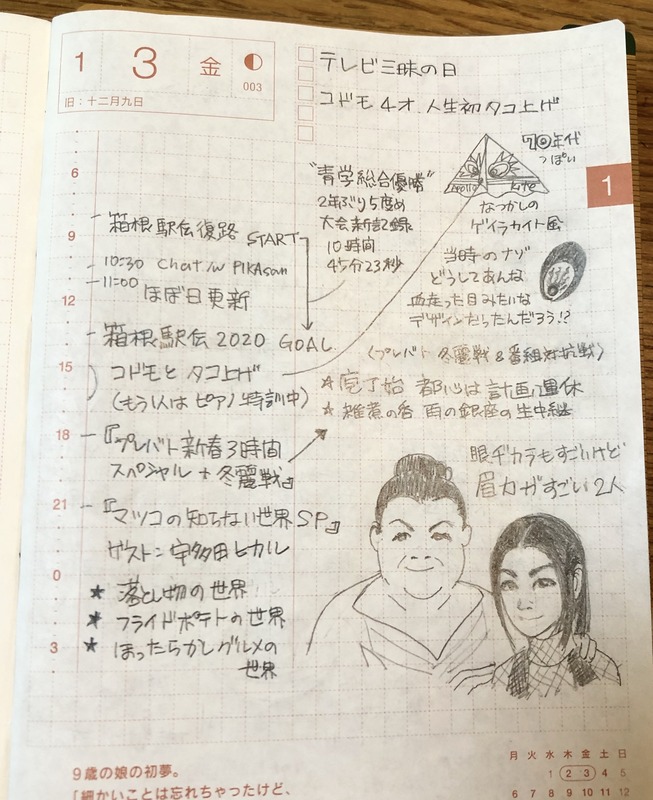 1 3 金
003
旧：十二月九日
テレビ三昧の日
コドモ4才 人生初タコ上げ
1
6
9
12
15
18
21
0
3
箱根駅伝復路 START
10:30 Chat/w PIKAsan
11:00 ほぼ日更新
箱根駅伝 2020 GOAL
コドモと タコ上げ
(もう1人は ピアノ特訓中)
『プレバト新春3時間
スペシャル + 冬麗戦』
『マツコの知らない世界SP』
ゲスト：宇多田ヒカル
★ 落とし物の世界
★ フライドポテトの世界
★ ほったらかしグルメの
世界
"青学総合優勝"
2年ぶり5度め
大会新記録
10時間
45分23秒
70年代
っぽい
Kite
なつかしの
ゲイラカイト風
当時のナゾ
どうしてあんな
血走った目みたいな
デザインだったんだろう!?
(プレバト 冬麗戦 & 番組対抗戦)
★ 庖丁始 都心は計画運休
★ 雑煮の香 雨の銀座の生中継
眼ヂカラもすごいけど
眉力がすごい2人
9歳の娘の初夢。
「細かいことは忘れちゃったけど、
月 火 水 木 金 土 日
1 2 3 4 5
6 7 8 9 10 11 12